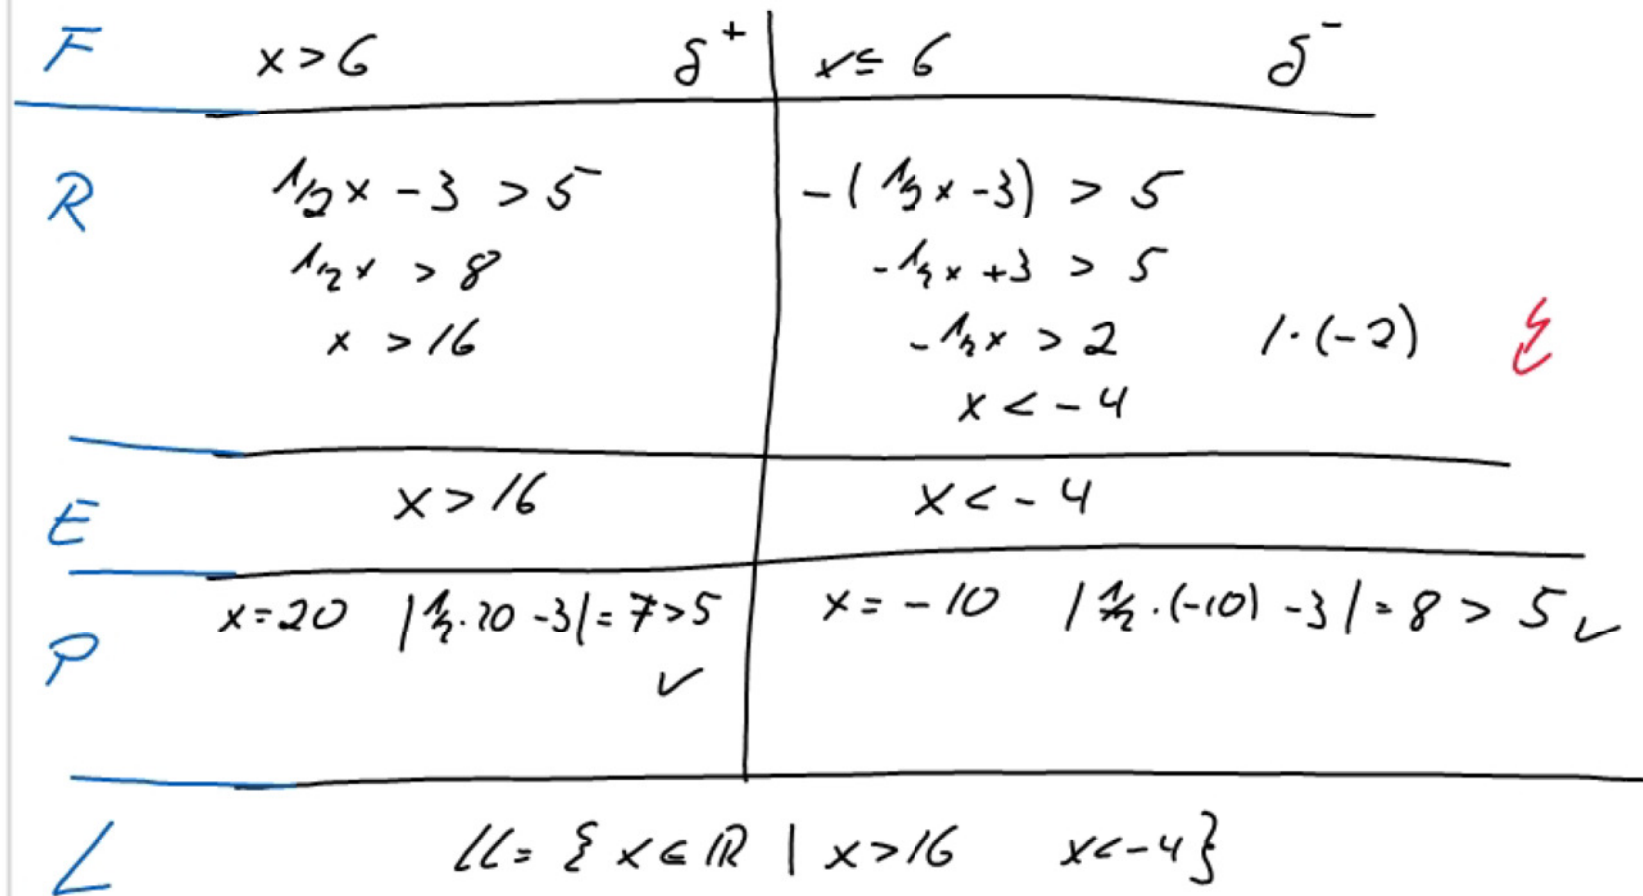 F x > 6 δ⁺ x ≤ 6 δ⁻
R 1/2 x - 3 > 5 -(1/2 x - 3) > 5
1/2 x > 8 -1/2 x + 3 > 5
x > 16 -1/2 x > 2 | · (-2) ↯
x < -4
E x > 16 x < -4
P x = 20 |1/2 · 20 - 3| = 7 > 5 ✓ x = -10 |1/2 · (-10) - 3| = 8 > 5 ✓
L 𝕃 = { x ∈ ℝ | x > 16 x < -4 }